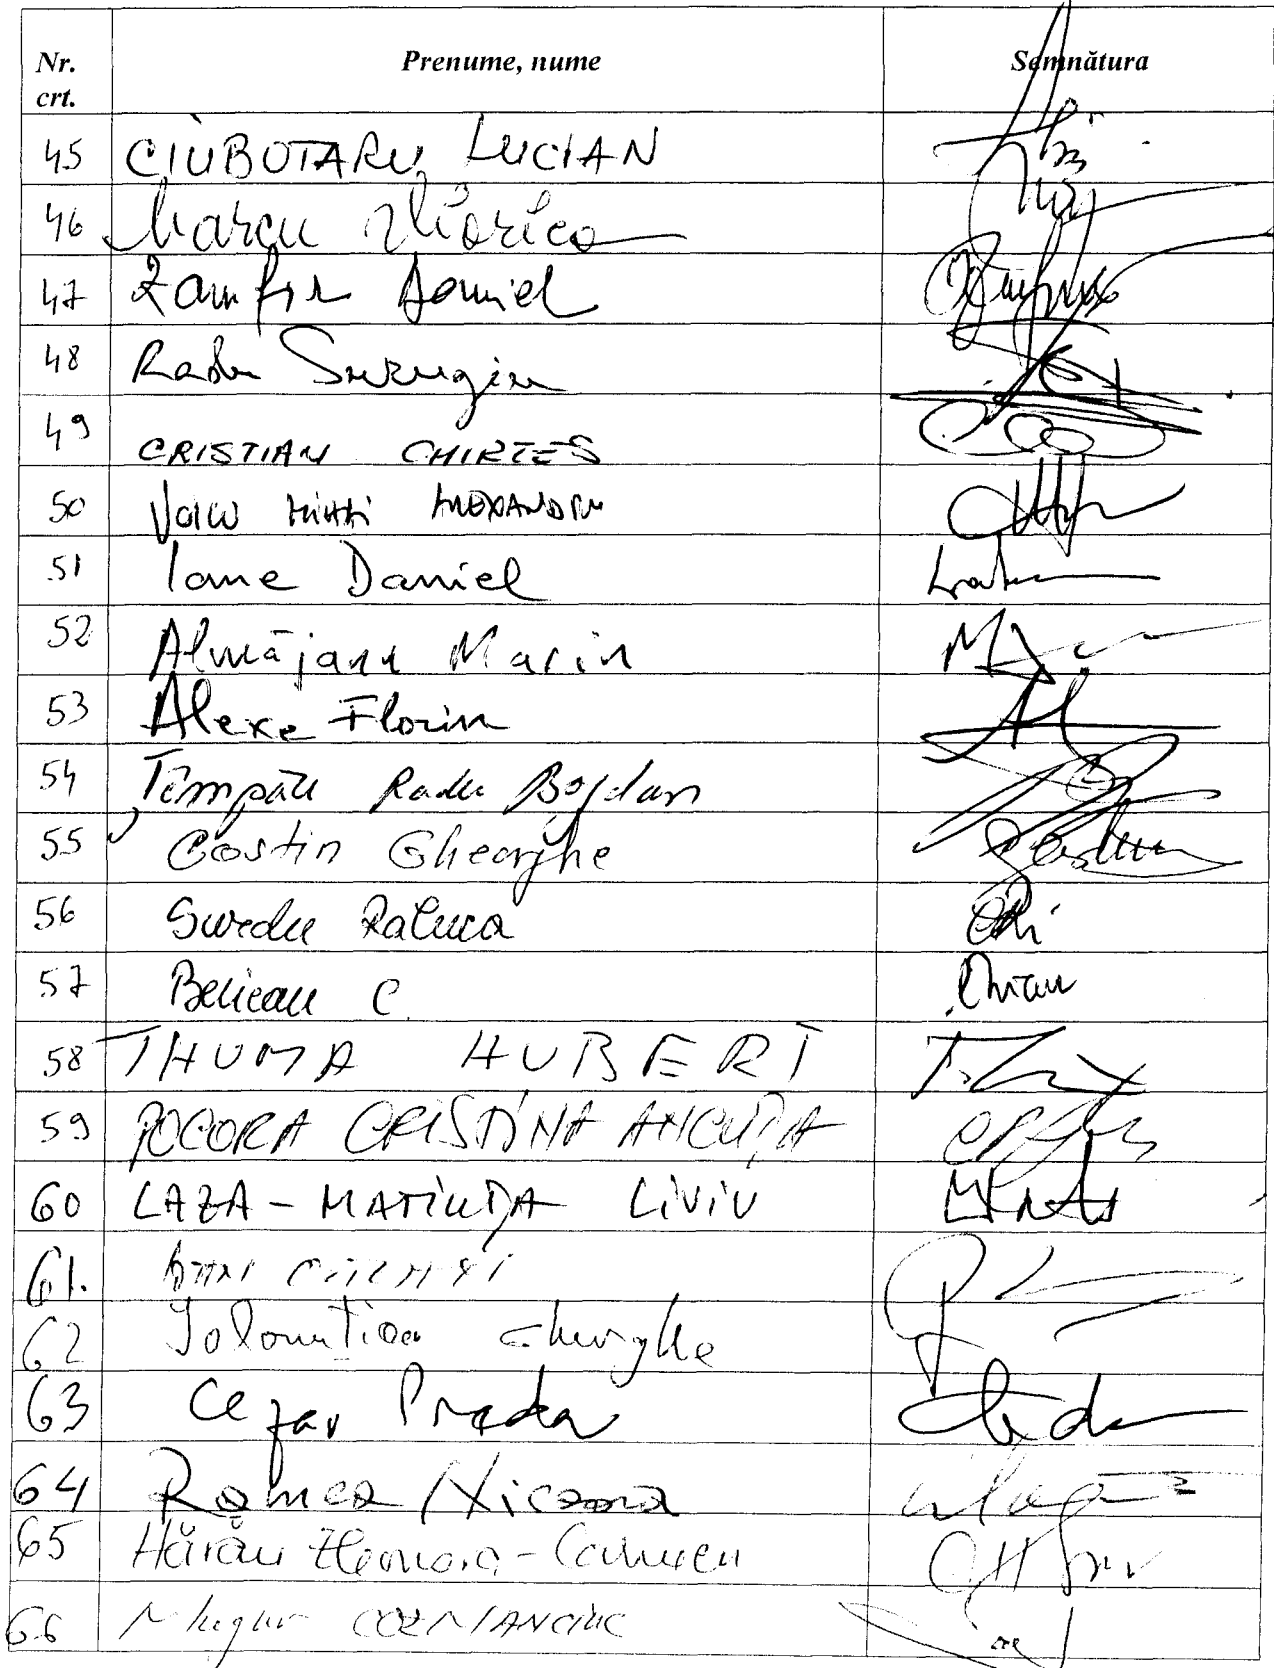 Nr. crt. Prenume, nume Semnătura
45 CIUBOTARU LUCIAN
46 Marcu Viorica
47 Zamfir Daniel
48 Radu Surugiu
49 CRISTIAN CHIRTEȘ
50 VOICU MIHAI ALEXANDRU
51 Iane Daniel
52 Almăjanu Marin
53 Alexe Florin
54 Tîmpău Radu Bogdan
55 Costin Gheorghe
56 Surdu Raluca
57 C
58 THUMA HUBERT
59 POCORA CRISTINA ANCUȚA
60 LAZA-MATIUȚA LIVIU
61.
62 Ialomițianu Gheorghe
63 Cezar Preda
64 Romeo Nicoară
65 Hărău Eleonora-Carmen
66 Mugur COZMANCIUC